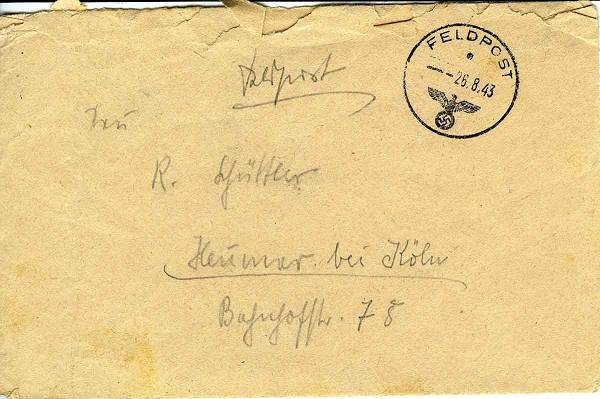 FELDPOST
26.8.43
Feldpost
R. Schüttler
Heumar bei Köln
Bahnhofstr. 78